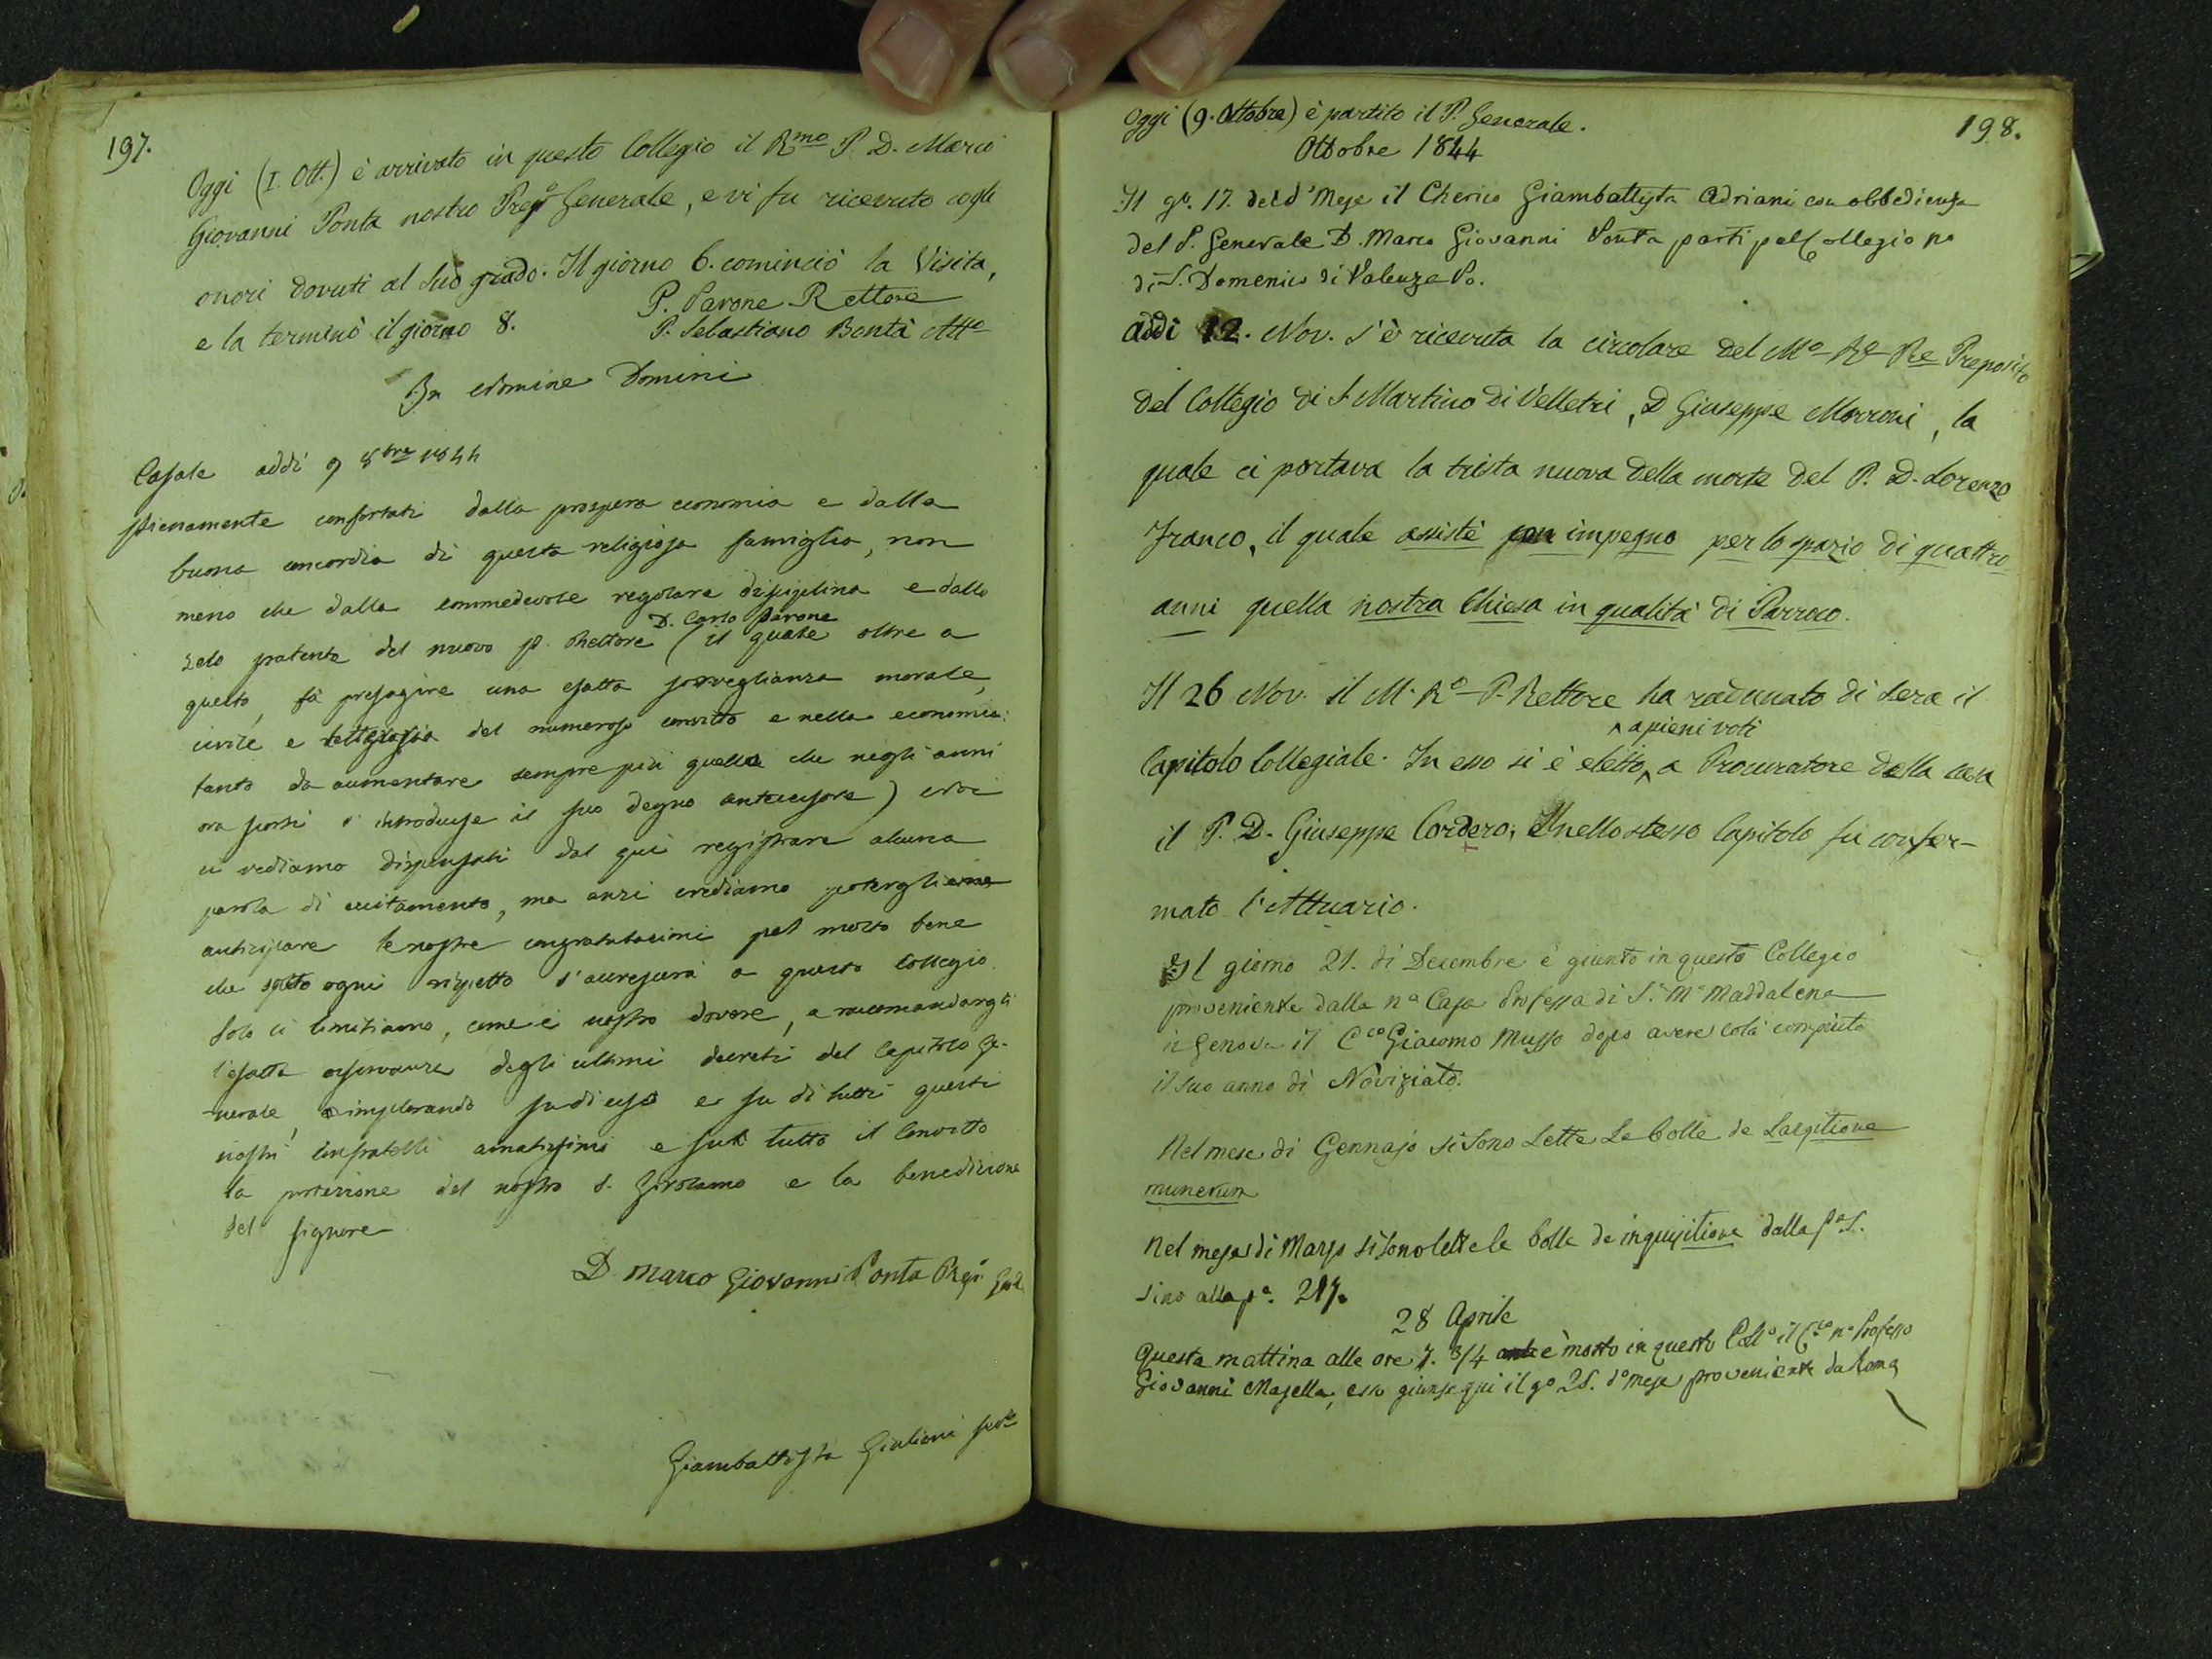 197.
Oggi (1. Ott.) è arrivato in questo Collegio il Rmo P. D. Marco
Giovanni Ponta nostro Prepo Generale, e vi fu ricevuto cogli
onori dovuti al suo grado. Il giorno 6. cominciò la Visita,
e la terminò il giorno 8.
P. Pavone Rettore
P. Sebastiano Bontà Atto
In nomine Domini
Casale addì 9 8bre 1844
Pienamente confortati dalla prospera economia e dalla
buona concordia di questa religiosa famiglia, non
meno che dalla commedevole regolare disciplina e dallo
zelo patente del nuovo P. Rettore D. Carlo Pavone (il quale oltre a
questo, fa presagire una esatta sorveglianza morale,
civile e religiosa del numeroso convitto e nella economia
tanto da aumentare sempre più quella che negli anni
ora scorsi v'introdusse il suo degno antecessore) noi
ci vediamo dispensati dal qui registrare alcuna
parola di eccitamento, ma anzi crediamo potergliene
anticipare le nostre congratulazioni pel molto bene
che sotto ogni rispetto s'accrescerà a questo Collegio.
Solo ci limitiamo, come è nostro dovere, a raccomandargli
l'esatta osservanza degli ultimi decreti del Capitolo Ge-
nerale, implorando su di esso e su di tutti questi
nostri Confratelli amatissimi e su tutto il Convitto
la protezione del nostro S. Girolamo e la benedizione
del Signore
D. Marco Giovanni Ponta Prep. Genle
Giambattista Giuliani Segr
198.
Oggi (9. Ottobre) è partito il P. Generale.
Ottobre 1844
Il go. 17. del do Mese il Cherico Giambattista Adriani con obbedienza
del P. Generale D. Marco Giovanni Ponta partì pel Collegio no
di S. Domenico di Valenza Po.
Addì 12. Nov. s'è ricevuta la circolare del Mo Ro Pe Preposito
del Collegio di S Martino di Velletri, D Giuseppe Morroni, la
quale ci portava la trista nuova della morte del P. D. Lorenzo
Franco, il quale assistè con impegno per lo spazio di quattro
anni quella nostra Chiesa in qualità di Parroco.
Il 26 Nov. il M. Ro P. Rettore ha radunato di sera il
Capitolo Collegiale. In esso si è eletto, a pieni voti a Procuratore della casa
il P. D. Giuseppe Cordero; E nello stesso Capitolo fu confer-
mato l'Attuario.
Il giorno 21. di Decembre è giunto in questo Collegio
proveniente dalla na Casa Professa di S. Ma Maddalena
in Genova il Cco Giacomo Musso dopo avere colà compiuto
il suo anno di Noviziato.
Nel mese di Gennajo si sono Lette Le bolle de Largitione
munerum
Nel mese di Marzo si sono lette le bolle de inquisitione dalla pa 1.
sino alla pa. 217.
28 Aprile
Questa mattina alle ore 7. 3/4 è morto in questo Collo il Cco no Professo
Giovanni Masella, esso giunse qui il go 25. do mese proveniente da Roma